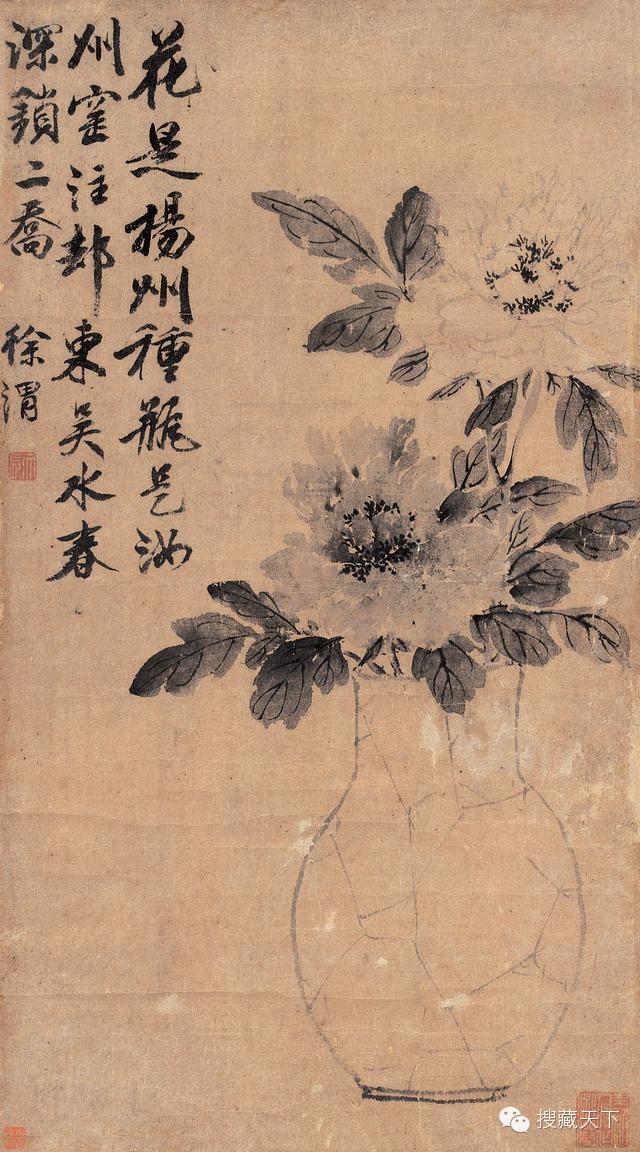 花是楊州種瓶是汝
州窑注却東吴水春
深鎖二喬
徐渭
搜藏天下